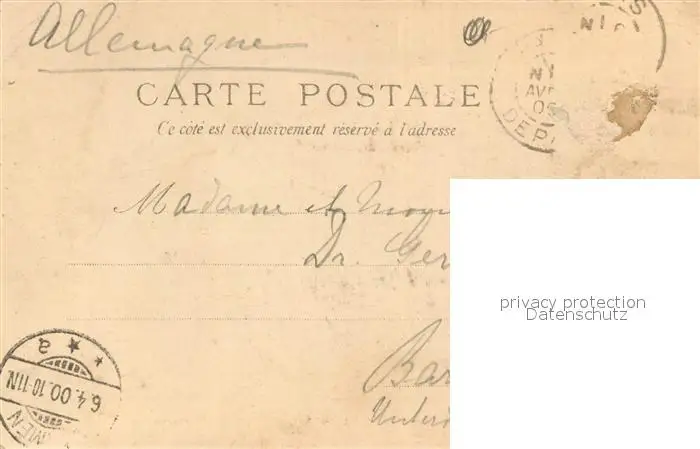 Allemagne
CARTE POSTALE
Ce côté est exclusivement réservé à l'adresse
AVR
DEP
Madame et
Dr. Ger
privacy protection
Datenschutz
Bar
a
6.4.00.10-11N
MEN